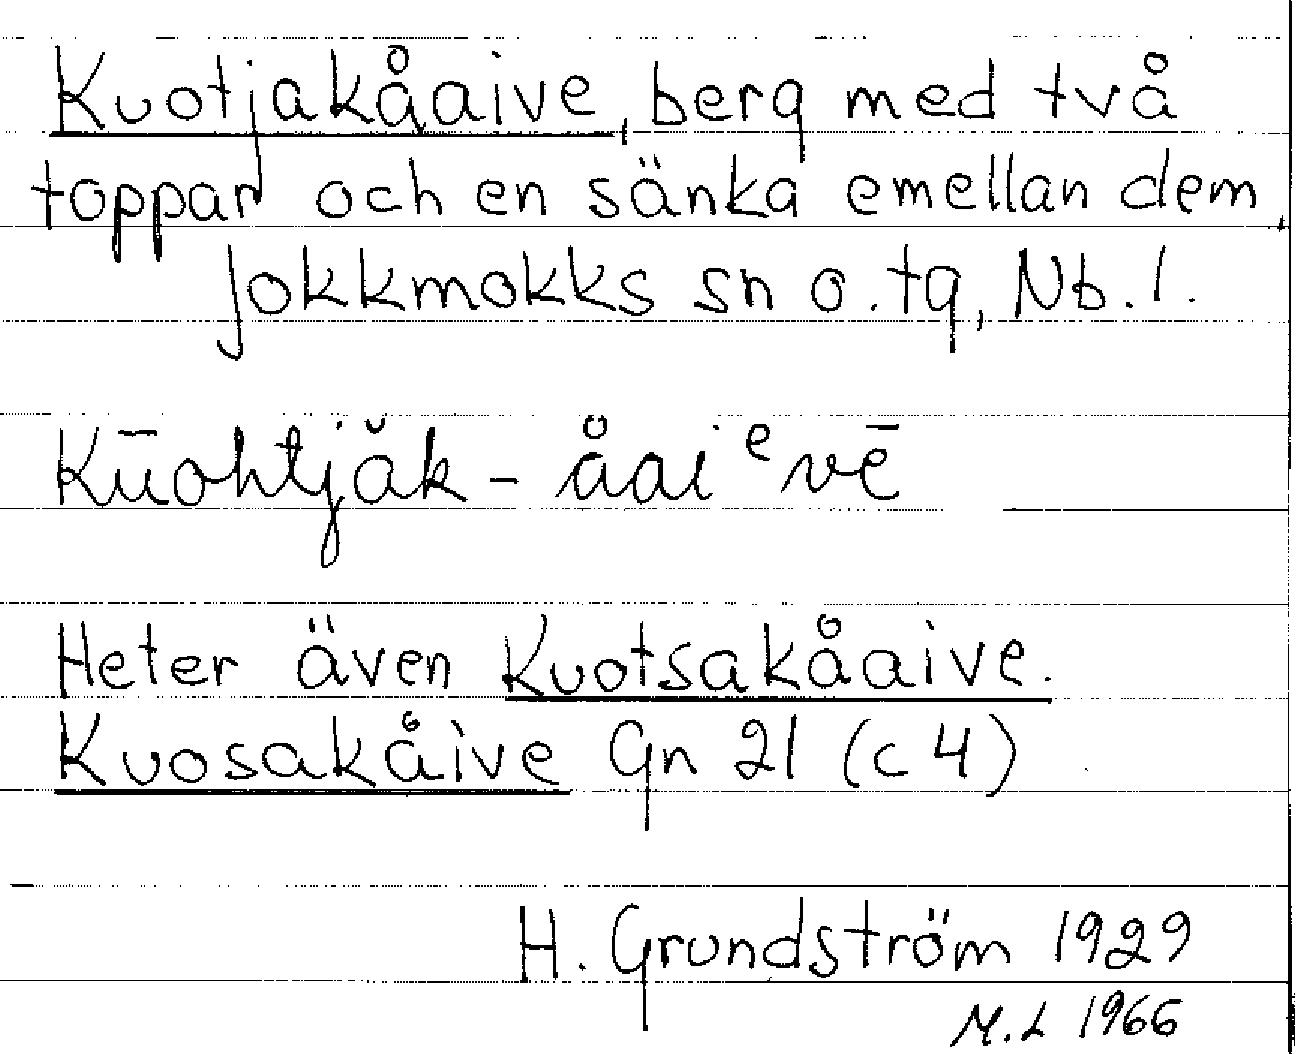 Kuotjakåaive, berg med två
toppar och en sänka emellan dem,
Jokkmokks sn o. tg, Nb. l.
Kūohtjăk - åaiᵉvē
Heter även Kuotsakåaive.
Kuosakåive Gn 21 (c 4)
H. Grundström 1929
M.L 1966